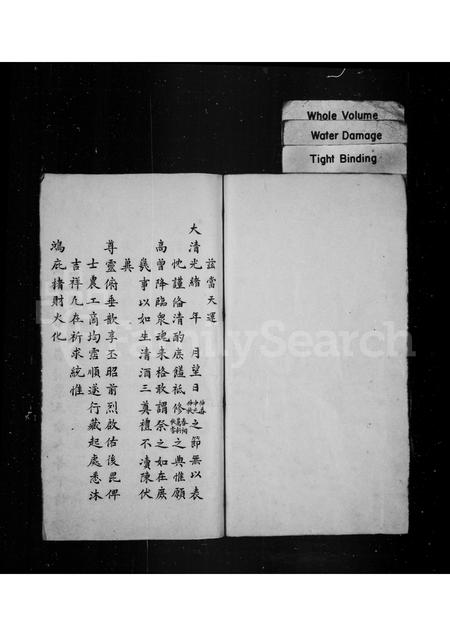 Whole Volume
Water Damage
Tight Binding
茲當天運
大清光緒 年 月望日之節無以表
忱謹俻清酌庶饈祗修之典惟願
高曾降臨衆魂来格敢謂祭之如在庶
幾事以如生清酒三奠禮不瀆陳伏
兾
尊靈俯垂歆享丕昭前烈啟佑後昆俾
士農工商均霑順遂行藏起處悉沐
吉祥凢在祈求統惟
鴻庇猪財火化
FamilySearch